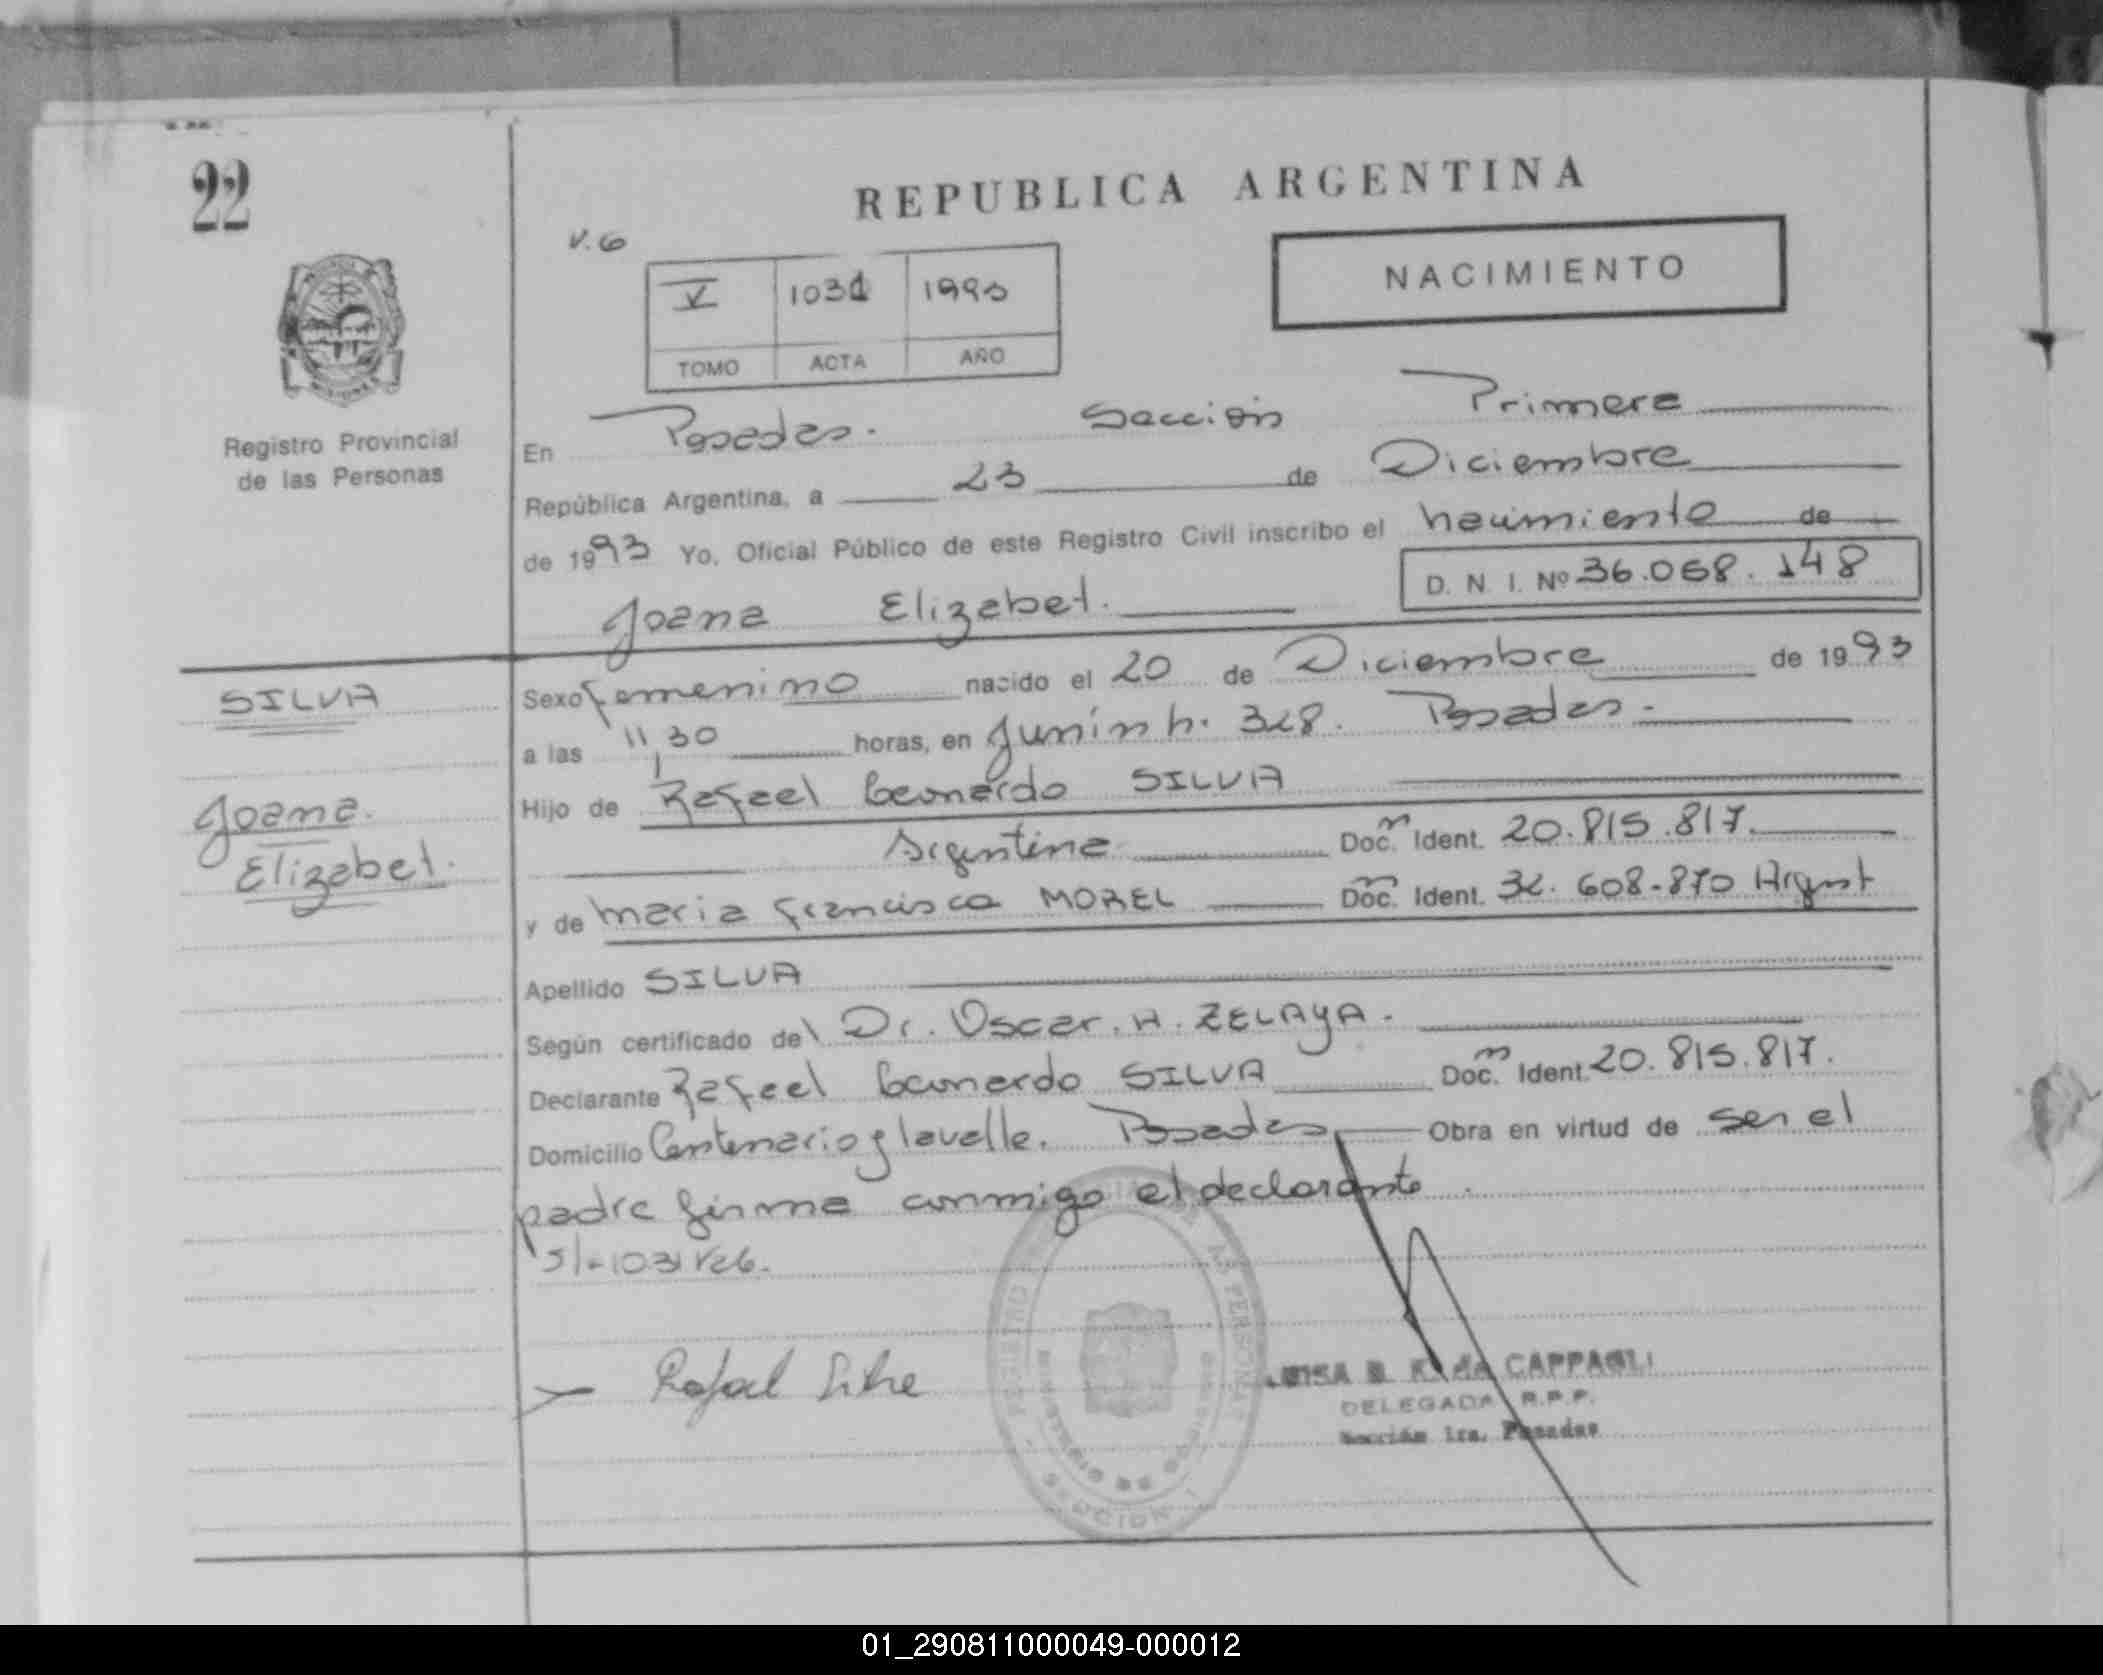 22
REPUBLICA ARGENTINA
V. 6
NACIMIENTO
V 1031 1993
TOMO ACTA AÑO
Registro Provincial
de las Personas
En Posadas. Sección Primera
República Argentina, a 23 de Diciembre
de 1993 Yo, Oficial Público de este Registro Civil inscribo el nacimiento de
D. N. I. Nº 36.068.148
Joana Elizabet.
SILVA
Joana
Elizabet.
Sexo femenino nacido el 20 de Diciembre de 1993
a las 11,30 horas, en Junín h. 328. Posadas.
Hijo de Rafael Leonardo SILVA
Argentina Doc. Ident. 20.815.817.
y de Maria Francisca MOREL Doc. Ident. 32.608.870 Argent
Apellido SILVA
Según certificado del Dr. Oscar. H. ZELAYA.
Declarante Rafael Leonardo SILVA Doc. Ident. 20.815.817.
Domicilio Centenario y lavalle. Posadas Obra en virtud de ser el
padre firma conmigo el declarante
S/-1031 V26.
Rafael Silva
LUISA B. K. de CAPPAGLI
DELEGADA R.P.P.
Sección 1ra. Posadas
01_290811000049-000012